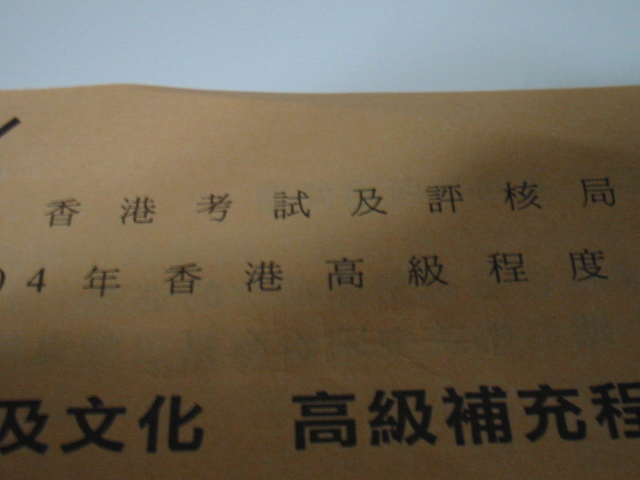 香港考試及評核局
04年香港高級程度
及文化 高級補充程